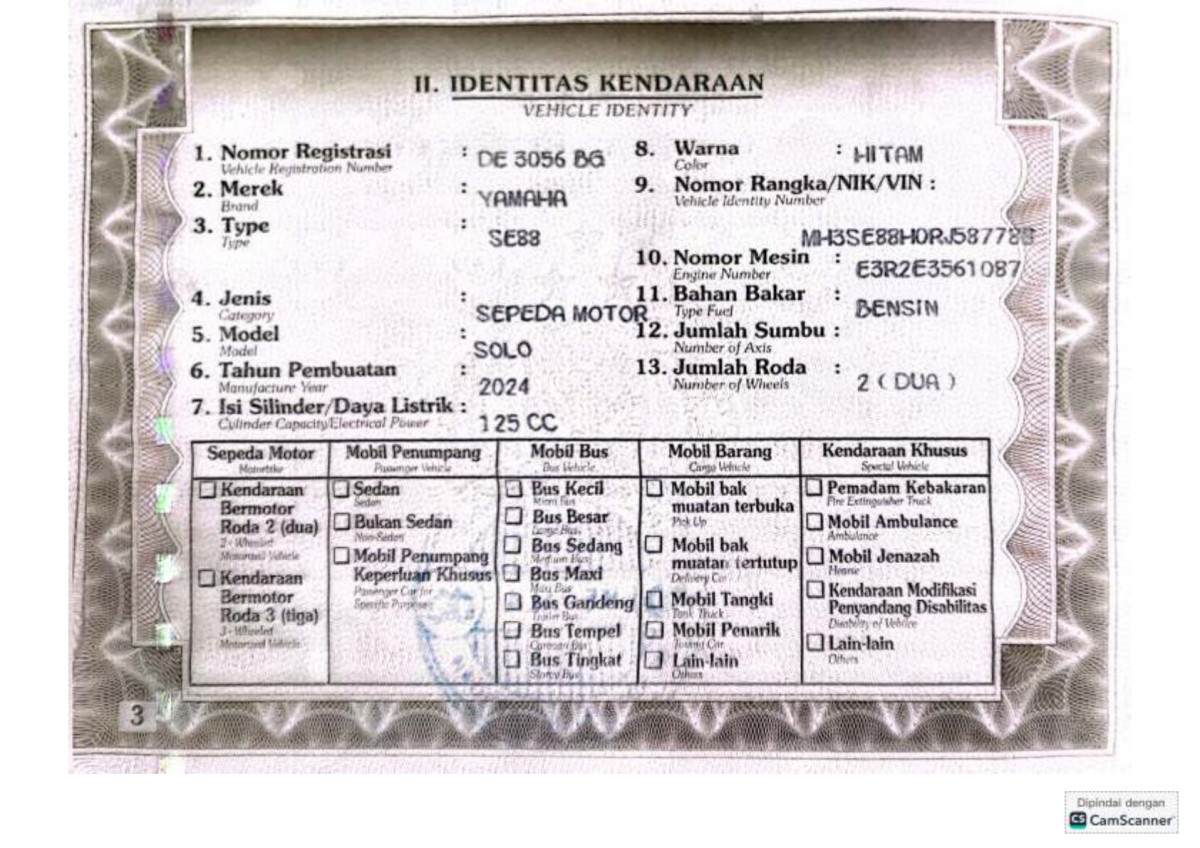 II. IDENTITAS KENDARAAN
VEHICLE IDENTITY
1. Nomor Registrasi : DE 3056 BG
Vehicle Registration Number
2. Merek : YAMAHA
Brand
3. Type : SE88
Type
4. Jenis : SEPEDA MOTOR
Category
5. Model : SOLO
Model
6. Tahun Pembuatan : 2024
Manufacture Year
7. Isi Silinder/Daya Listrik : 125 CC
Cylinder Capacity/Electrical Power
8. Warna : HITAM
Color
9. Nomor Rangka/NIK/VIN :
Vehicle Identity Number
MH3SE88H0RJ587788
10. Nomor Mesin : E3R2E3561087
Engine Number
11. Bahan Bakar : BENSIN
Type Fuel
12. Jumlah Sumbu :
Number of Axis
13. Jumlah Roda : 2 ( DUA )
Number of Wheels
Sepeda Motor
Motorbike
Kendaraan
Bermotor
Roda 2 (dua)
2 - Wheeled
Motorized Vehicle
Kendaraan
Bermotor
Roda 3 (tiga)
3 - Wheeled
Motorized Vehicle
Mobil Penumpang
Passenger Vehicle
Sedan
Sedan
Bukan Sedan
Non-Sedan
Mobil Penumpang
Keperluan Khusus
Passenger Car for
Specific Purpose
Mobil Bus
Bus Vehicle
Bus Kecil
Micro Bus
Bus Besar
Large Bus
Bus Sedang
Medium Bus
Bus Maxi
Maxi Bus
Bus Gandeng
Train Bus
Bus Tempel
Bus Tingkat
Mobil Barang
Cargo Vehicle
Mobil bak
muatan terbuka
Pick Up
Mobil bak
muatan tertutup
Delivery Car
Mobil Tangki
Tank Truck
Mobil Penarik
Towing Car
Lain-lain
Others
Kendaraan Khusus
Special Vehicle
Pemadam Kebakaran
Fire Extinguisher Truck
Mobil Ambulance
Ambulance
Mobil Jenazah
Hearse
Kendaraan Modifikasi
Penyandang Disabilitas
Disability of Vehicle
Lain-lain
Others
3
Dipindai dengan
CS CamScanner